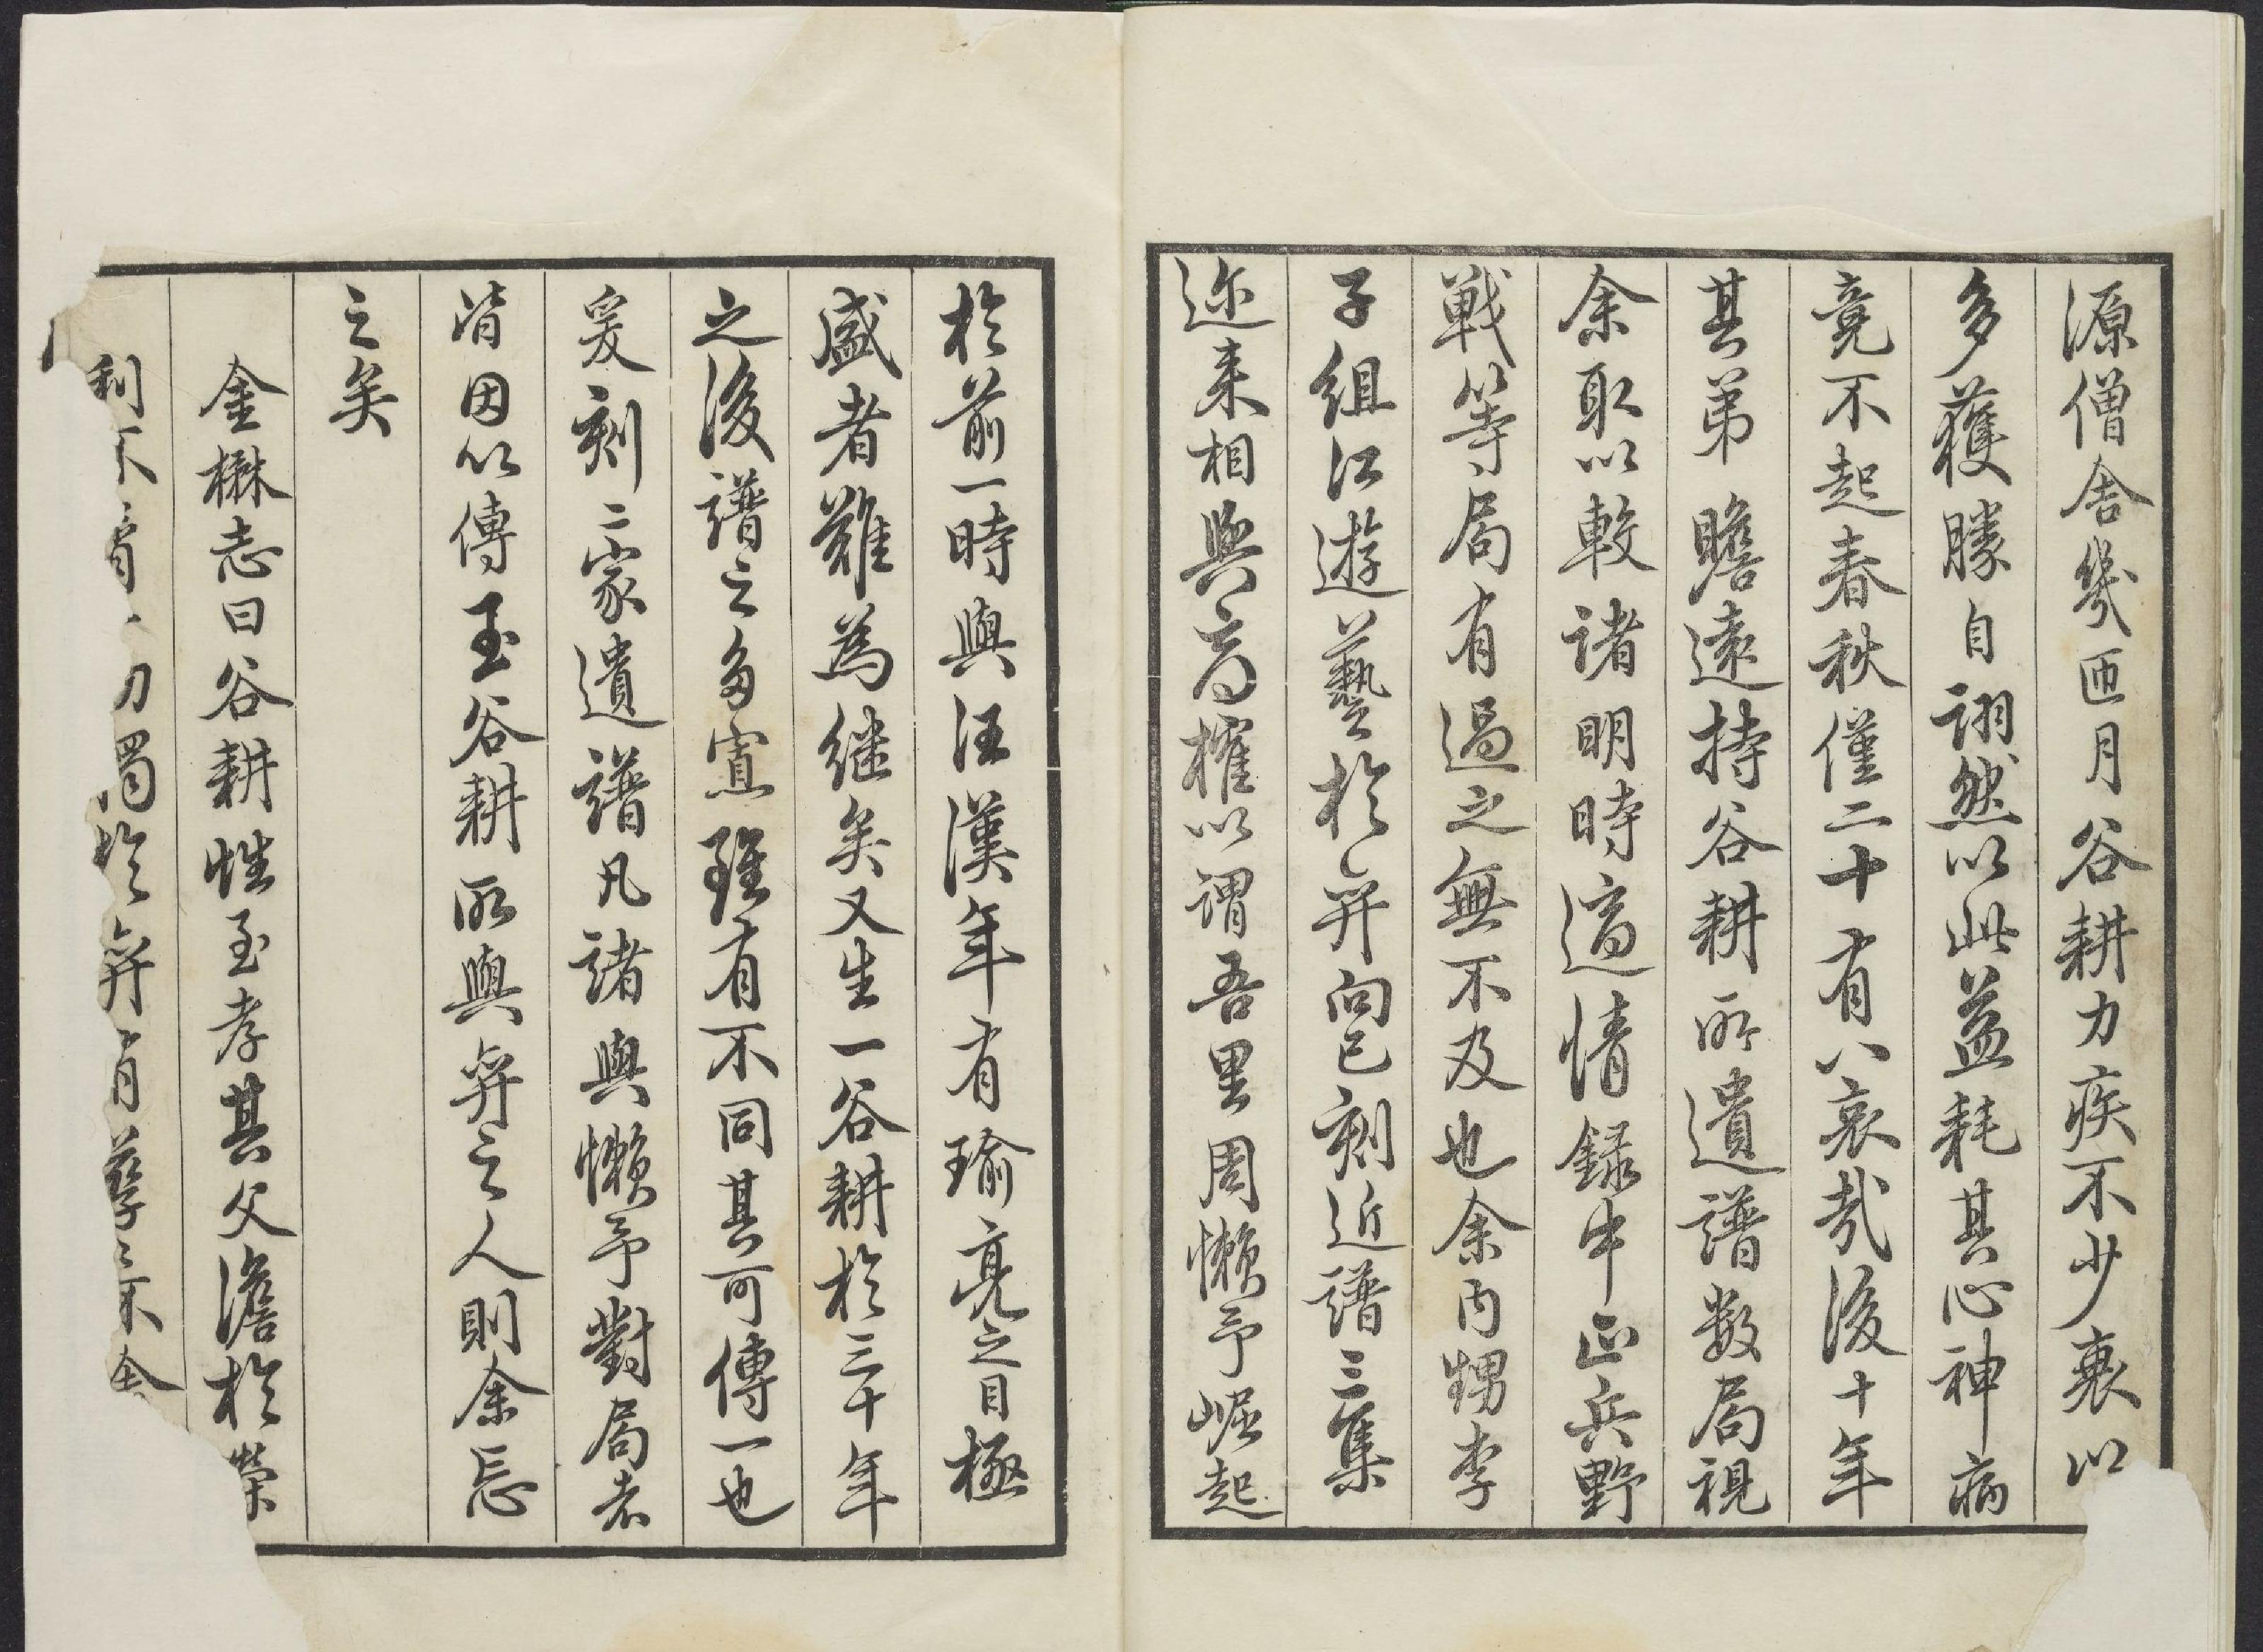 源僧舍幾匝月谷耕力疾不少衰以
多獲勝自詡然以此益耗其心神病
竟不起春秋僅二十有八哀哉後十年
其弟瞻遠持谷耕所遺譜数局視
余取以較諸明時適情録中正兵野
戰等局有過之無不及也余内甥李
子組江遊藝於弈向已刻近譜三集
迩来相與商榷以謂吾里周懶予崛起
於前一時與汪漢年有瑜亮之目極
盛者難為继矣又生一谷耕於三十年
之後譜之多寡雖有不同其可傳一也
爰刻二家遺譜凡諸與懶予對局者
皆因以傳至谷耕所與弈之人則余忘
之矣
金楙志曰谷耕性至孝其父澹於榮
利不 獨於弈有